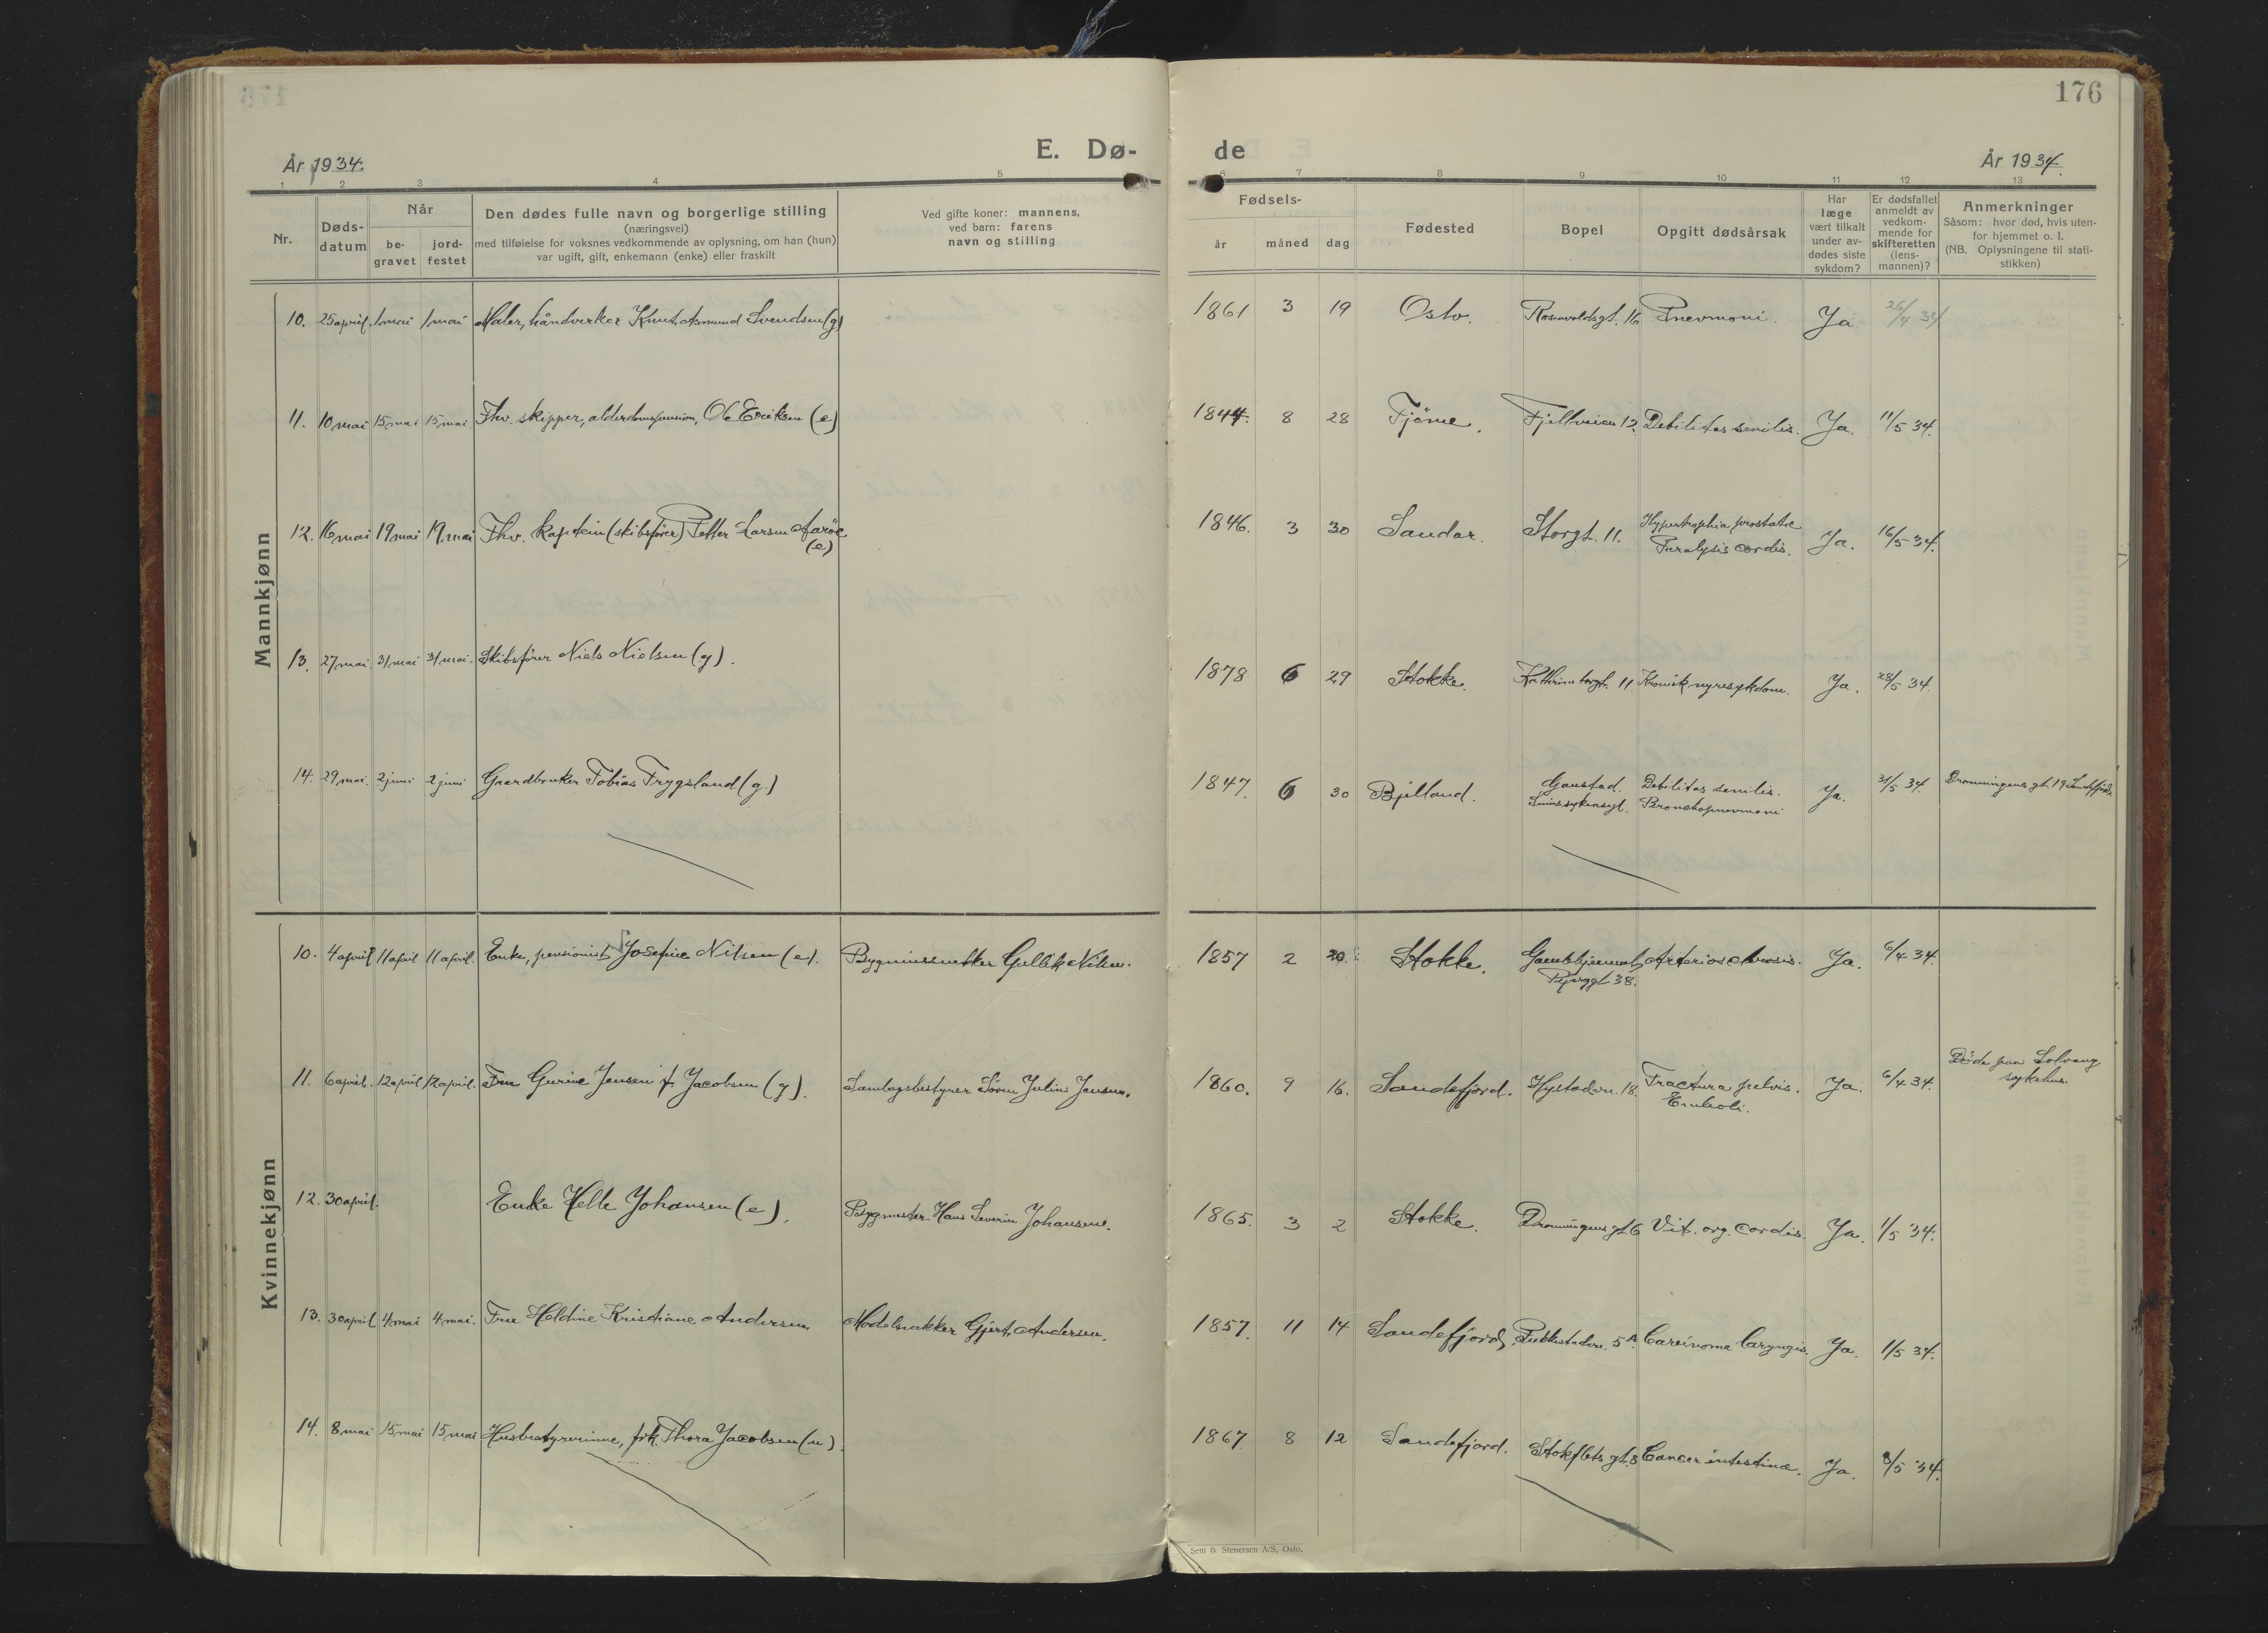 176
E. Dø- de
År 1934. År 1934.
1 2 3 4 5 6 7 8 9 10 11 12 13
Nr. Døds-datum Når be-gravet jord-festet
Den dødes fulle navn og borgerlige stilling
(næringsvei)
med tilføielse for voksnes vedkommende av oplysning, om han (hun)
var ugift, gift, enkemann (enke) eller fraskilt
Ved gifte koner: mannens,
ved barn: farens
navn og stilling
Fødsels- år måned dag
Fødested
Bopel
Opgitt dødsårsak
Har læge vært tilkalt under av-dødes siste sykdom?
Er dødsfallet anmeldt av vedkom-mende for skifteretten (lens-mannen)?
Anmerkninger
Såsom: hvor død, hvis uten-
for hjemmet o. l.
(NB. Oplysningene til stati-
stikken)
Mannkjønn
10. 25 april. 1 mai 1 mai Maler, håndverker Knut Asmund Svendsen (g) 1861 3 19 Oslo. Rosenvoldsgt. 16 Pnevmoni. Ja 26/4 34
11. 10 mai 15 mai 15 mai Fhv. skipper, alderdomspension, Ole Eriksen (e) 1844. 8 28 Tjöme. Fjellveien 12. Debilitas senilis. Ja. 11/5 34.
12. 16 mai 19 mai 19. mai Fhv. kaptein (skibsfører) Petter Larsen Aaröe (e) 1846. 3 30 Sandar. Storgt. 11. Hypertrophia prostatae Paralysis cordis. Ja. 16/5 34.
13. 27 mai 31 mai 31 mai. Skibsfører Niels Nielsen (g). 1878 6 29 Stokke. 11. Kronisk nyresykdom. Ja. 28/5 34.
14. 29 mai. 2 juni 2 juni Gaardbruker Tobias Trygsland (g.) 1847. 6 30 Bjelland. Gaustad. Sinnssykeasyl. Debilitas senilis. Bronchopnevmoni Ja. 31/5 34. Dronningens gt. 19 Sandefjord
Kvinnekjønn
10. 4 april 11 april 11 april. Enke, pensionist, Josefine Nilsen (e). Bygningssnekker Gullik Nilsen. 1857 2 20. Stokke. Gamlehjemmet, Bjerggt 38. Arteriosclerosis. Ja. 6/4 34.
11. 6 april. 12 april 12 april. Fru Gurine Jensen f. Jacobsen (g). Samlagsbestyrer Sören Julius Jensen. 1860. 9 16. Sandefjord. Hystadvn. 18. Fractura pelvis. Emboli. Ja. 6/4 34. Döde paa Solvang sykehus.
12. 30 april. Enke Helle Johansen (e). Bygmester Hans Severin Johansen. 1865. 3 2 Stokke. Dronningens gt. 6 Vit. org. cordis. Ja. 1/5 34.
13. 30 april 4 mai 4 mai. Fru Heldine Kristiane Andersen Modelsnekker Gjert Andersen. 1857. 11 14 Sandefjord. 5 A. Carcinoma laryngis. Ja. 1/5 34.
14. 8 mai 15 mai 15 mai Husbestyrerinne, frk. Thora Jacobsen (u). 1867 8 12 Sandefjord. Stokflets gt. 8 Cancer intestinae. Ja. 8/5 34.
Sem & Stenersen A/S, Oslo.